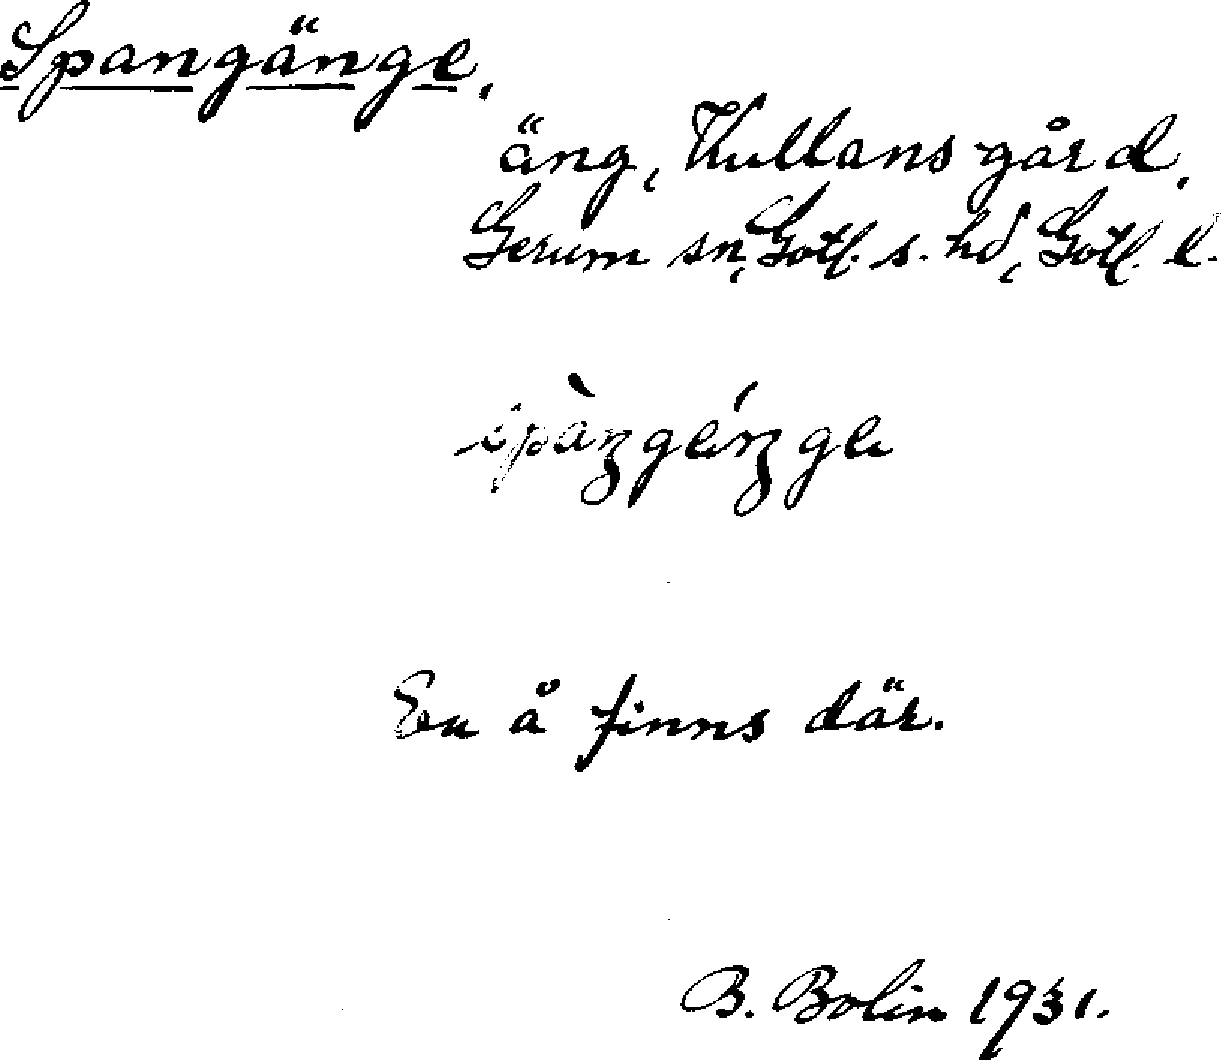 Spangänge.
äng, Kullans gård.
Gerum sn, Gotl. s. hd, Gotl. l.
spàŋgéŋge
En å finns där.
B. Bolin 1931.